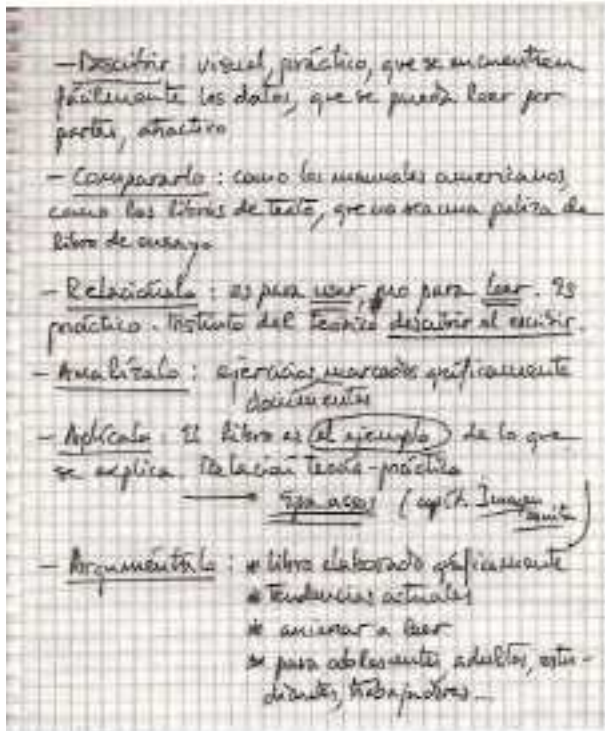 - Describir : visual, práctico, que se encuentren
fácilmente los datos, que se pueda leer por
partes, atractivo
- Compararlo : como los manuales americanos,
como los libros de texto, que no sea una paliza de
libro de ensayo
- Relaciónalo : es para usar, no para leer. Es
práctico. Distinto del teórico descubrir al escribir.
- Analízalo : ejercicios marcados gráficamente
documentos
- Aplícalo : El libro es el ejemplo de lo que
se explica. Relación teoría-práctica
(capít. Imagen
- Arguméntalo : * libro elaborado gráficamente
* tendencias actuales
* animar a leer
* para adolescentes, adultos, estu-
diantes, trabajadores...